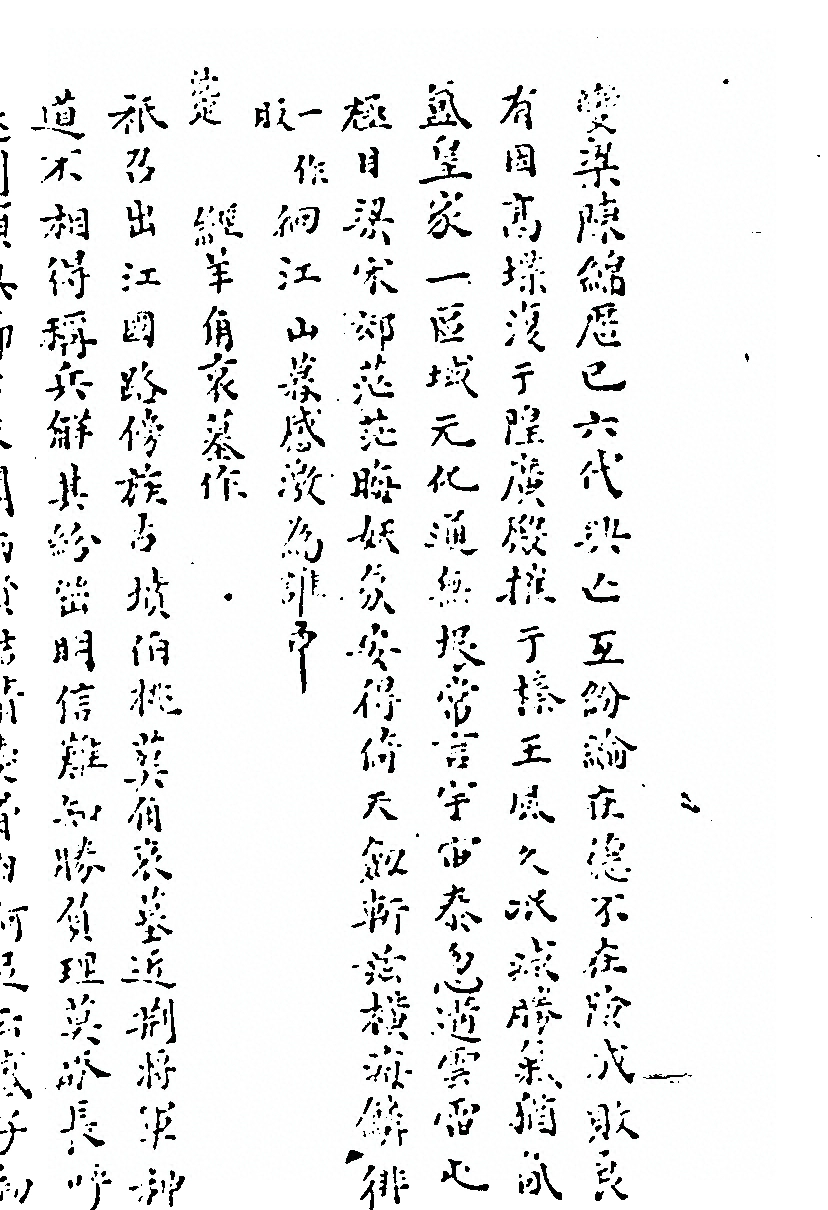 變梁陳綿厯已六代興亡互紛論在德不在險成敗良
有因髙堞復于隍廣殿摧于榛王風久泯滅勝氣猶氤
氳皇家一區域元化通無垠常言宇宙泰忽遘雲雷屯
極目梁宋郊茫茫晦妖氛安得倚天劔斬茲橫海鱗徘
一作
徊江山暮感激為誰申
楚
經羊角哀墓作
祇召出江國路傍旌古墳伯桃葬角哀墓近荆將軍神
道不相得稱兵解其紛幽明信難知勝負理莫分長呼